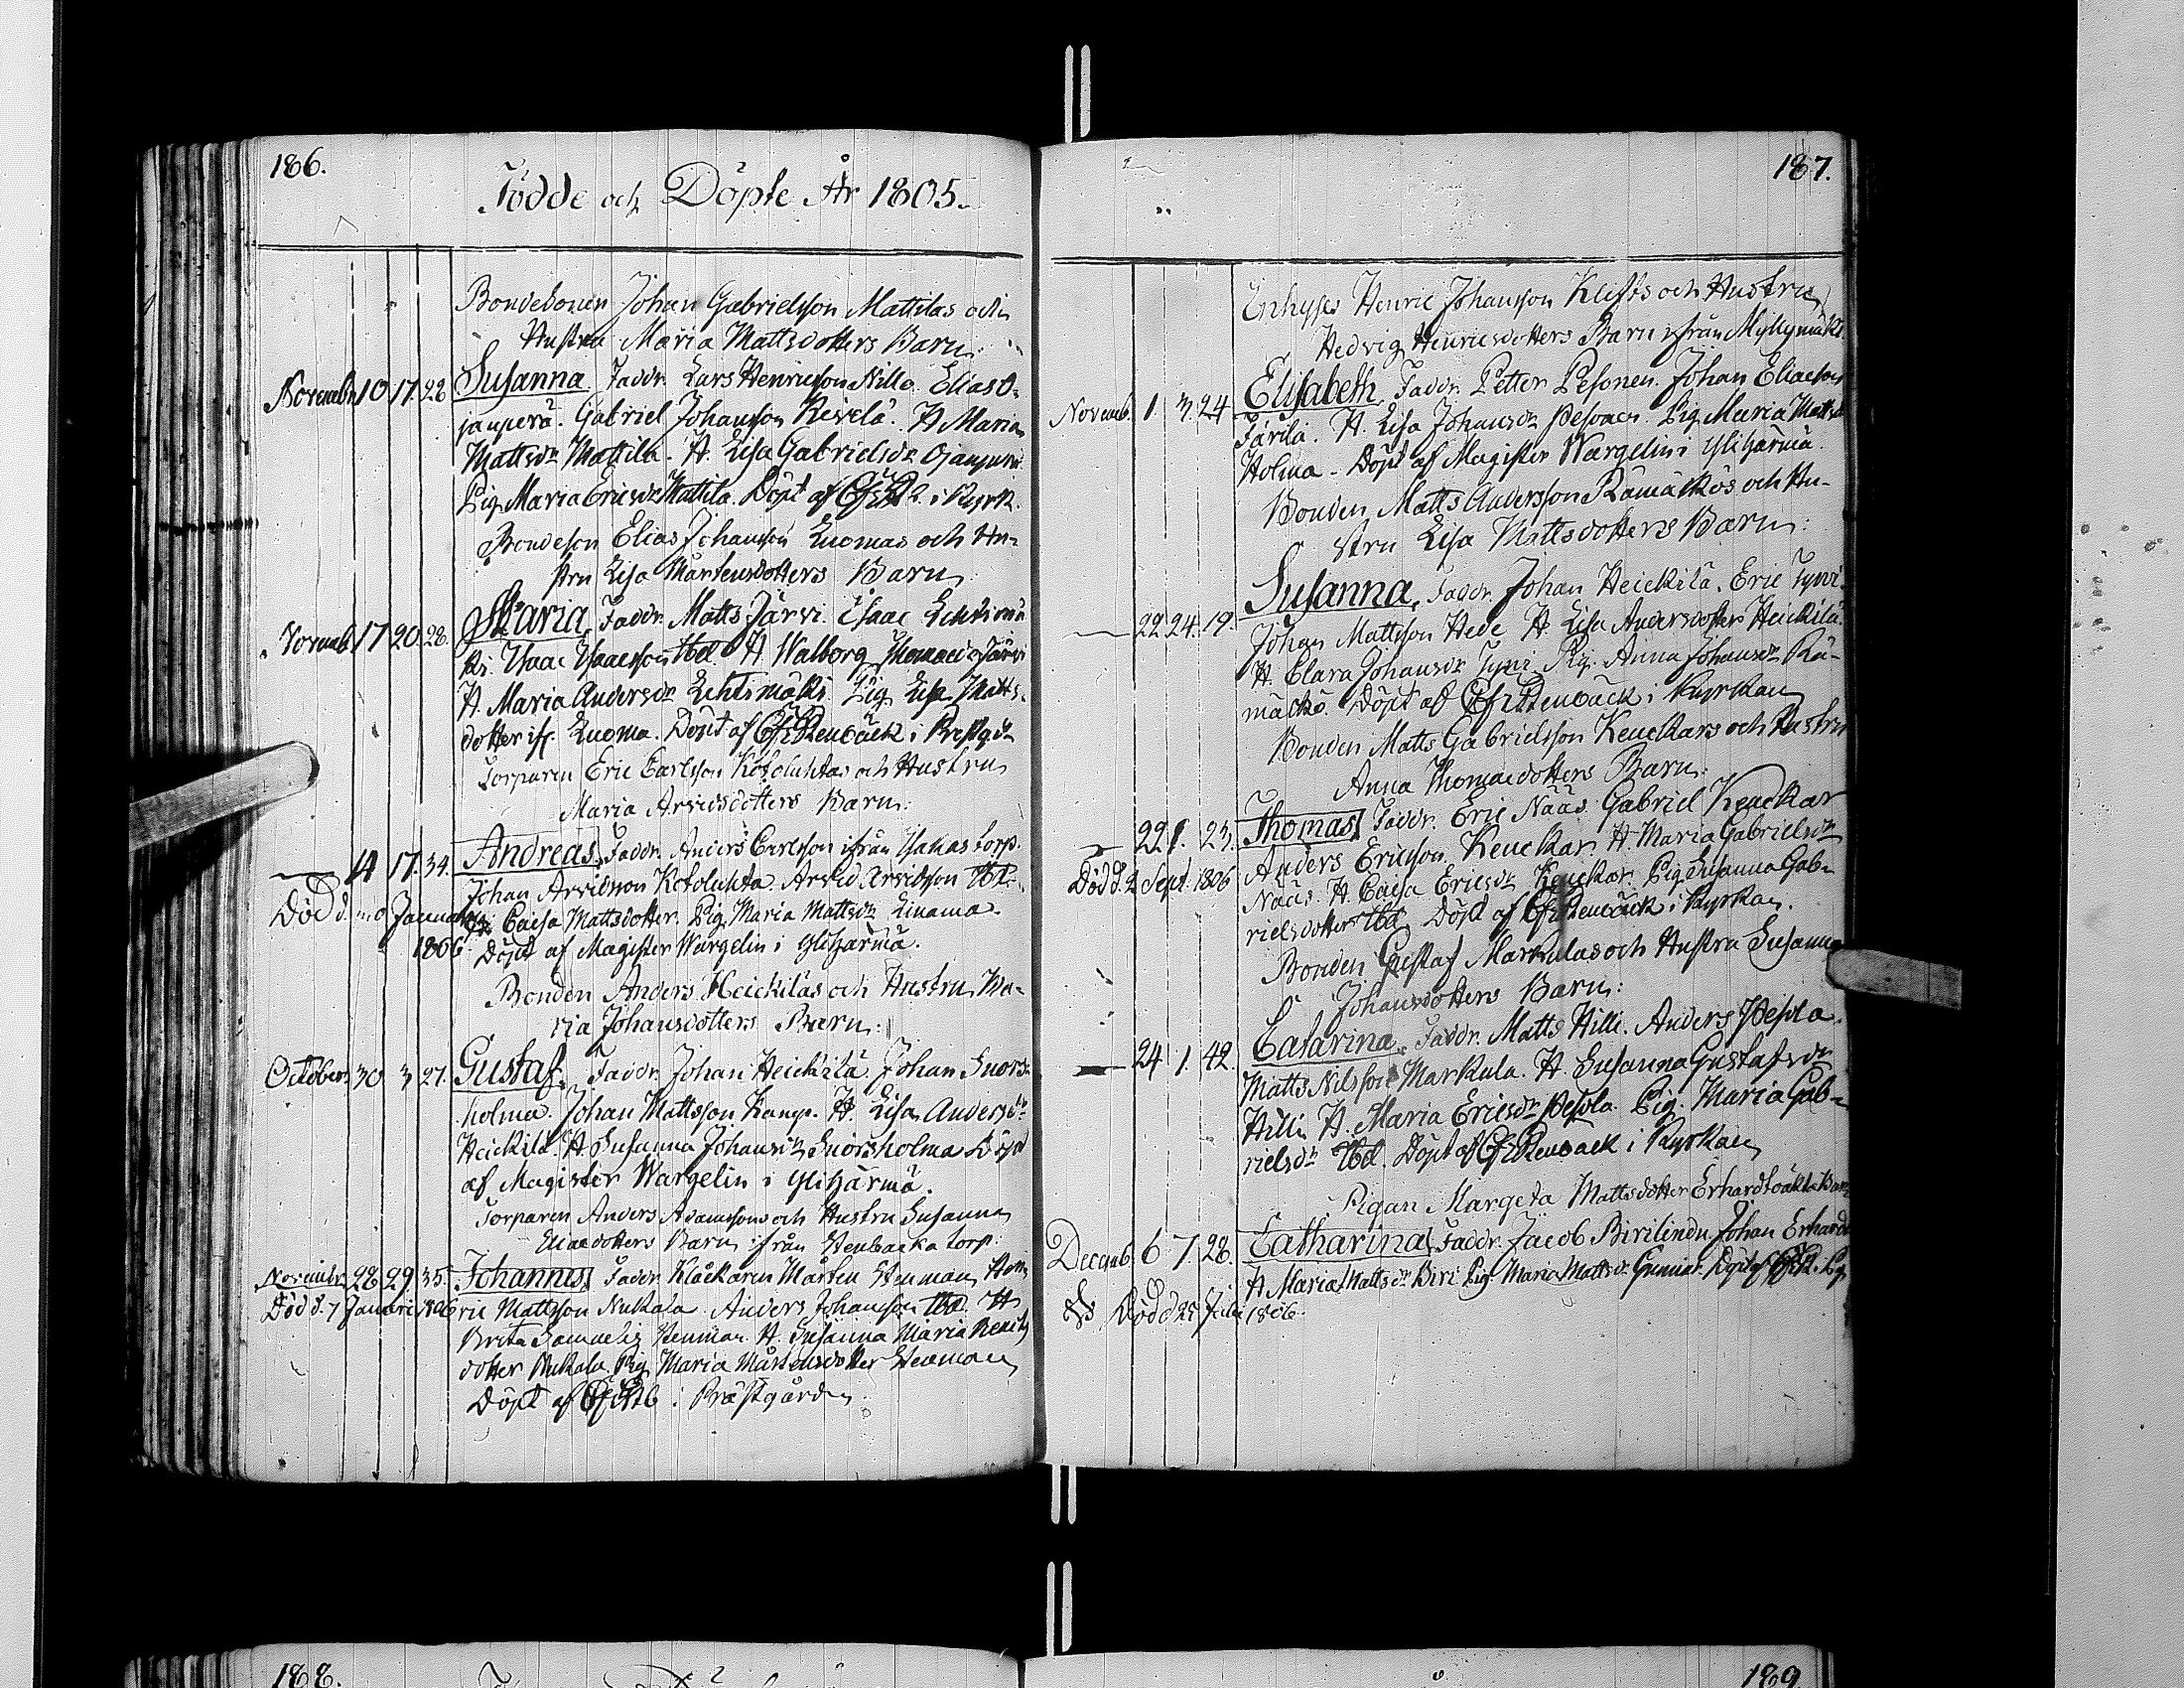 186.
Födde och Döpte År 1805.
Bondesonen Johan Gabrielsson Mattilas och
Hustru Maria Mattsdotters Barn:
Novemb. 10 17. 28 Susanna. Faddr. Lars Henricsson Nille. Elias O-
janperä. Gabriel Johansson Kivelä. H. Maria
Mattsdr Mattila. H. Lisa Gabrielsdr Ojanperä
Pig. Maria Ericsdr Mattila. Döpt af i Kyrk.
Bondeson Elias Johansson Luomas och Hu-
stru Lisa Mårtensdotters Barn:
Novemb. 17 20. 28. Maria, Faddr. Matts Järvi. Isaac Lehtimä
ki. Isaac Isaacsson Ibd. H. Walborg Thomaedr Järvi
H. Maria Andersdr Lehtimäki. Pig. Lisa Matts-
dotter ifr. Luoma. Döpt af i Prestgdn
Torparen Eric Carlsson Kotoluhtas och Hustru
Maria Arvidsdotters Barn:
— 14 17. 34. Andreas, Faddr. Anders Carlsson ifrån torp.
Johan Arvidsson Kotoluhta. Arvid Arvidsson Ibd.
Död d. Januari Caisa Mattsdotter. Pig. Maria Mattsdr Linama.
1806. Döpt af Magister Wargelin i Ylihärmä.
Bonden Anders Heickiläs och Hustru Ma-
ria Johansdotters Barn:
October. 30 3 27. Gustaf. Faddr. Johan Heickilä. Johan Snors-
holma. Johan Mattsson Kamp. H. Lisa Andersdr
Heickilä. H. Susanna Johansdr Snorsholma Döpt
af Magister Wargelin i Ylihärmä.
Torparen Anders Adamssons och Hustru Susanna
Eliaedotters Barn ifrån Stenbacka torp:
Novembr. 28 29. 35. Johannes, Faddr. Klåckaren Mårten Stenman, Hen-
Död d. 7 Januari 1806 ric Mattsson Nukala. Anders Johansson Ibd. H.
Brita Stenman. H. Susanna Maria
dotter Nukala. Pig. Maria Mårtensdotter Stenman
Döpt af i Prästgården
187.
Inhyses Henric Johansson Klifts och Hustru
Hedvig Henricsdotters Barn ifrån Myllymäki
Novemb. 1. 3. 24 Elisabeth, Faddr. Petter Pesonen. Johan Eliaeson
Järilä. H. Lisa Johansdr Pesonen. Pig. Maria Mattsdr
Holma. Döpt af Magister Wargelin i Ylihärmä.
Bonden Matts Andersson Rämäckös och Hu-
stru Lisa Mattsdotters Barn:
— 22. 24. 19. Susanna, Faddr. Johan Heickilä. Eric Tyni.
Johan Mattsson Hede H. Lisa Andersdotter Heickilä.
H. Clara Johansdr Tyni. Pig. Anna Johansdr Rä-
mäckö. Döpt af i Kyrkan
Bonden Matts Gabrielsson Keuckars och Hustru
Anna Thomaedotters Barn:
— 22 1. 23. Thomas, Faddr. Eric Nääs. Gabriel Keuckar
Anders Ericsson Keuckar. H. Maria Gabrielsdr
Död d. 2 Sept. 1806 Nääs. H. Caisa Ericsdr Keuckar. Pig. Susanna Gab-
rielsdotter Ibd. Döpt af i Kyrkan.
Bonden Gustaf Markulas och Hustru Susanna
Johansdotters Barn:
— 24 1. 42. Catarina, Faddr. Matts Hilli. Anders Pesola.
Matts Nilsson Markula. H. Susanna Gustafsdr
Hilli H. Maria Ericsdr Pesola. Pig. Maria Gab-
rielsdr Ibd. Döpt af i Kyrkan
Pigan Margeta Mattsdotter Erhardt Barn
Decemb. 6 7. 28. Catharina, Faddr. Jacob Johan Erhardt
H. Maria Mattsdr Biri Pig. Maria Mattsdr Döpt af
Död d 25 Julii 1806.
188.
189.